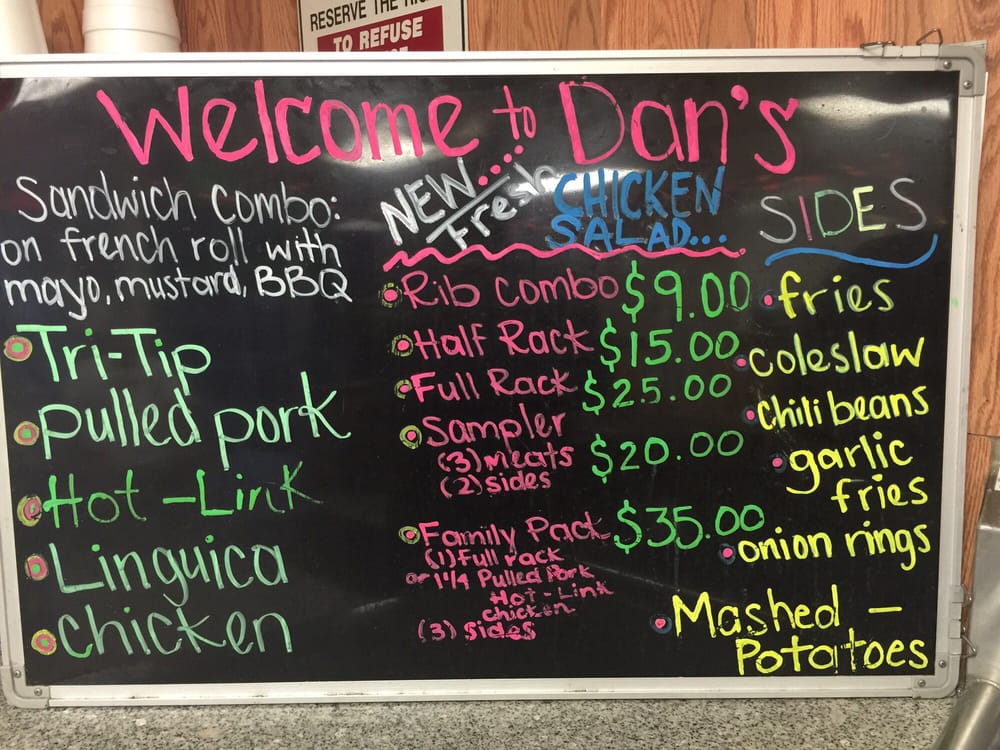 RESERVE THE RIG
TO REFUSE
Welcome to Dan's
Sandwich Combo:
on french roll with
mayo, mustard, BBQ
Tri-Tip
pulled pork
Hot-Link
Linguica
chicken
NEW...
Fresh CHICKEN
SALAD...
Rib combo $9.00
Half Rack $15.00
Full Rack $25.00
Sampler
(3) meats $20.00
(2) sides
Family Pack $35.00
(1) Full rack
or 1 1/4 Pulled Pork
Hot-Link
chicken
(3) Sides
SIDES
fries
coleslaw
chili beans
garlic
fries
onion rings
Mashed -
Potatoes